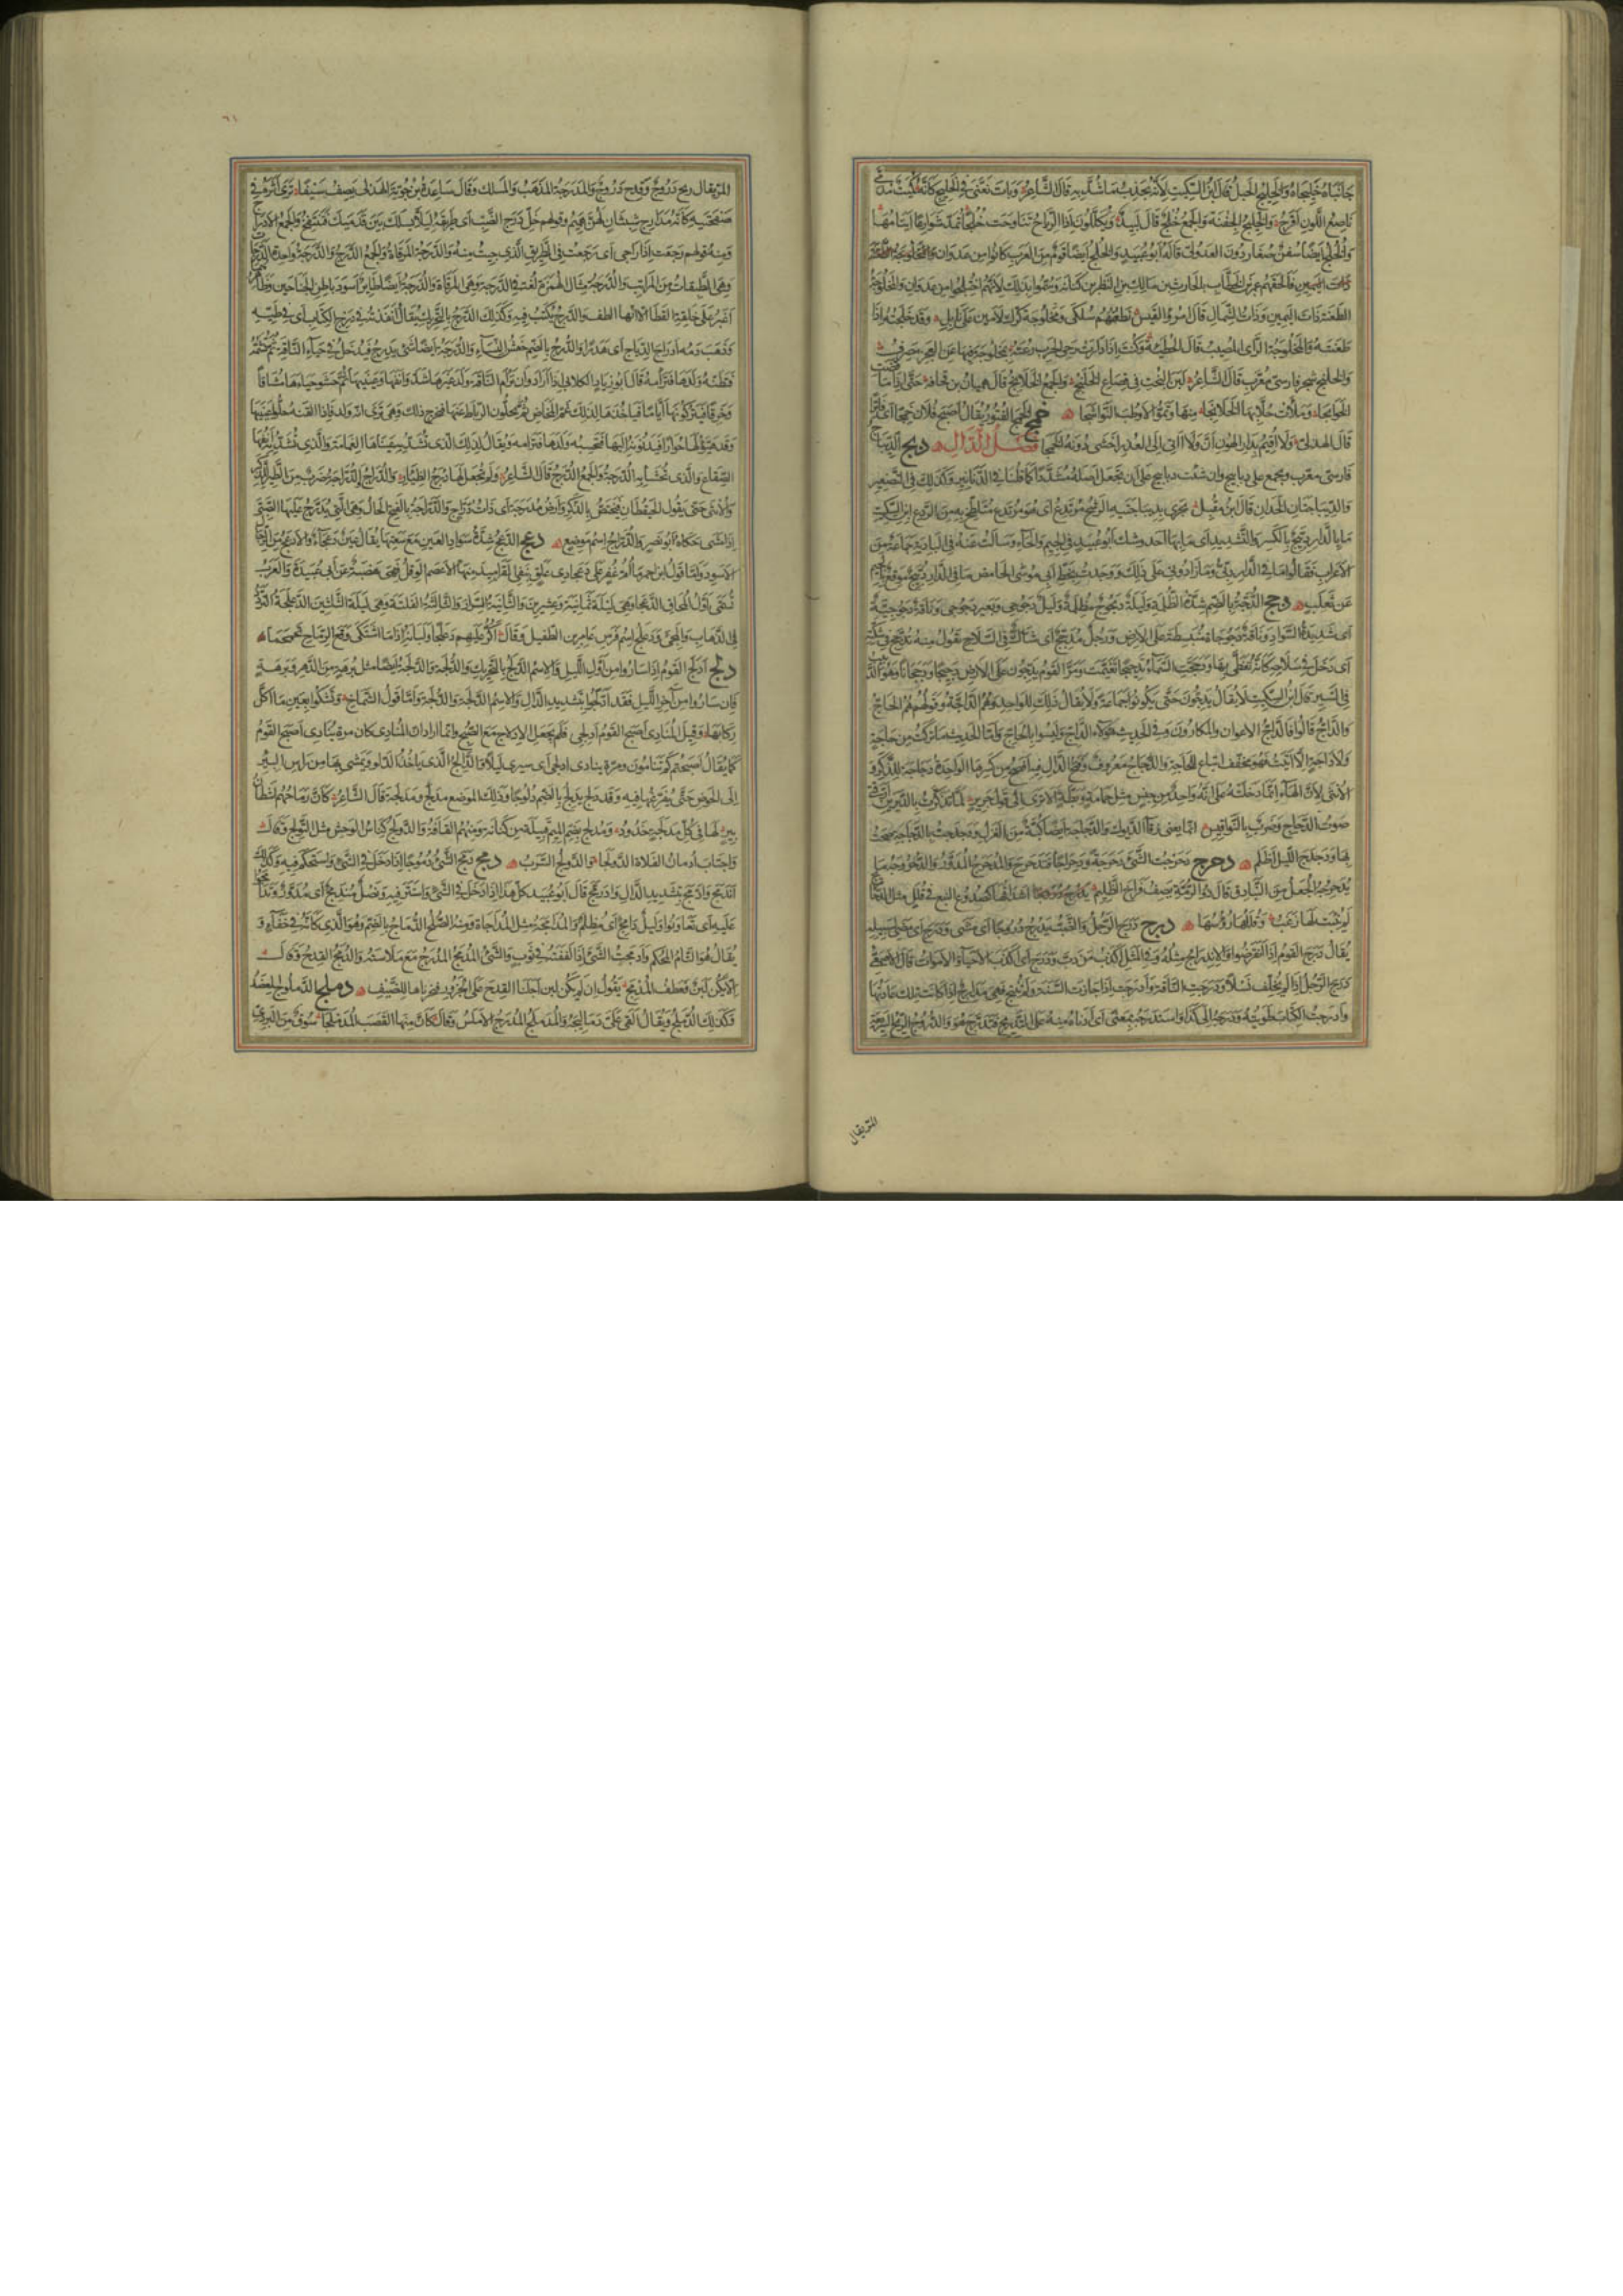 جَانِبَاهُ خَلِيجَاهُ وَالْخَلِيجُ الحَبْلُ قَالَ ابْنُ السِّكِّيتِ لِأَنَّهُ يَجْذِبُ مَا شُدَّ بِهِ قَالَ الشَّاعِرُ وَبَاتَ يُغَنِّي فِي الْخَلِيجِ كَأَنَّهُ كُمَيْتٌ مُدَمًّى
نَاصِعُ اللَّوْنِ أَقْرَحُ وَالْخَلِيجُ الْجَفْنَةُ وَالْجَمْعُ خُلُجٌ قَالَ لَبِيدٌ وَيُكَلِّلُونَ إِذَا الرِّيَاحُ تَنَاوَحَتْ خُلُجًا تُمَدُّ شَوَارِعًا أَيْتَامُهَا
وَالْخُلُجُ أَيْضًا سُفُنٌ صِغَارٌ دُونَ العَدَوْلِيِّ قَالَهُ أَبُو عُبَيْدٍ وَالْخُلُجُ أَيْضًا قَوْمٌ مِنَ الْعَرَبِ كَانُوا مِنْ عَدْوَانَ
فَأَلْحَقَهُمْ عُمَرُ بْنُ الْخَطَّابِ بِالْحَارِثِ بْنِ مَالِكِ بْنِ النَّضْرِ بْنِ كِنَانَةَ وَسُمُّوا بِذَلِكَ لِأَنَّهُمْ اخْتُلِجُوا مِنْ عَدْوَانَ وَالْمَخْلُوجَةُ
الطَّعْنَةُ ذَاتَ الْيَمِينِ وَذَاتَ الشِّمَالِ قَالَ امْرُؤُ الْقَيْسِ نَطْعُنُهُمْ سُلْكَى وَمَخْلُوجَةً كَرَّكَ لَأْمَيْنِ عَلَى نَابِلِ وَقَدْ خَلَجْتُهُ إِذَا
طَعَنْتَهُ وَالْمَخْلُوجَةُ الرَّأْيُ الْمُصِيبُ قَالَ الْحُطَيْئَةُ وَكُنْتَ إِذَا دَارَتْ رَحَى الْحَرْبِ رُعْتَهُ بِمَخْلُوجَةٍ فِيهَا عَنِ الْعَجْزِ مَصْرِفُ
وَالْخَلَنْجُ شَجَرٌ فَارِسِيٌّ مُعَرَّبٌ قَالَ الشَّاعِرُ لَبَنَ الْبُخْتِ فِي قِصَاعِ الْخَلَنْجِ وَالْجَمْعُ الْخَلَانِجُ قَالَ هِمْيَانُ بْنُ قُحَافَةَ حَتَّى إِذَا مَا قَضَتِ
الْحَوَائِجَا وَمَلَأَتْ حُلَّابُهَا الْخَلَانِجَا مِنْهَا وَثَمُّوا الْأَوْطُبَ النَّوَاشِجَا خمج الْخَمَجُ الْفُتُورُ يُقَالُ أَصْبَحَ فُلَانٌ خَمِجًا أَيْ فَاتِرًا
قَالَ الْهُذَلِيُّ وَلَا أُقِيمُ بِدَارِ الْهُونِ إِنَّ وَلَا آتِي إِلَى الْغَدْرِ أَخْشَى دُونَهُ الْخَمَجَا فَصْلُ الدَّالِ دبج الدِّيبَاجُ
فَارِسِيٌّ مُعَرَّبٌ وَيُجْمَعُ عَلَى دَيَابِيجَ وَإِنْ شِئْتَ دَبَابِيجَ عَلَى أَنْ تَجْعَلَ أَصْلَهُ مُشَدَّدًا كَمَا قُلْنَا فِي الدَّنَانِيرِ وَكَذَلِكَ فِي التَّصْغِيرِ
وَالدِّيبَاجَتَانِ الْخَدَّانِ قَالَ ابْنُ مُقْبِلٍ يَجْرِي بِدِيبَاجَتَيْهِ الرَّشْحُ مُرْتَدِعُ أَيْ هُوَ مُرْتَدِعٌ مُتَلَطِّخٌ بِهِ مِنَ الرَّدْعِ ابْنُ السِّكِّيتِ
مَا بِالدَّارِ دِبِّيجٌ بِالْكَسْرِ وَالتَّشْدِيدِ أَيْ مَا بِهَا أَحَدٌ وَشَكَّ أَبُو عُبَيْدٍ فِي الْجِيمِ وَالْحَاءِ وَسَأَلْتُ عَنْهُ فِي الْبَادِيَةِ جَمَاعَةً مِنَ
الْأَعْرَابِ فَقَالُوا مَا فِي الدَّارِ دِبِّيٌّ وَمَا زَادُونِي عَلَى ذَلِكَ وَوَجَدْتُ بِخَطِّ أَبِي مُوسَى الْحَامِضِ مَا فِي الدَّارِ دِبِّيجٌ مُوَقَّعٌ بِالْجِيمِ
عَنْ ثَعْلَبٍ دجج الدُّجَّةُ بِالضَّمِّ شِدَّةُ الظُّلْمَةِ وَلَيْلَةٌ دَيْجُوجٌ مُظْلِمَةٌ وَلَيْلٌ دَجُوجِيٌّ وَبَعِيرٌ دَجُوجِيٌّ وَنَاقَةٌ دَجُوجِيَّةٌ
أَيْ شَدِيدَةُ السَّوَادِ وَنَاقَةٌ دَجُوجَاةٌ مُنْبَسِطَةٌ عَلَى الْأَرْضِ وَرَجُلٌ مُدَجِّجٌ أَيْ شَاكٌّ فِي السِّلَاحِ تَقُولُ مِنْهُ تَدَجَّجَ فِي شِكَّتِهِ
أَيْ دَخَلَ فِي سِلَاحِهِ كَأَنَّهُ تَغَطَّى بِهَا وَدَجَّجَتِ السَّمَاءُ تَدْجِيجًا تَغَيَّمَتْ وَمَرَّ الْقَوْمُ يَدِجُّونَ عَلَى الْأَرْضِ دَجِيجًا وَدَجَجَانًا وَهُوَ الدَّبِيبُ
فِي السَّيْرِ قَالَ ابْنُ السِّكِّيتِ لَا يُقَالُ يَدِجُّونَ حَتَّى يَكُونُوا جَمَاعَةً وَلَا يُقَالُ ذَلِكَ لِلْوَاحِدِ وَهُمُ الدَّاجَّةُ وَقَوْلُهُمْ هُمُ الْحَاجُّ
وَالدَّاجُّ قَالُوا فَالدَّاجُّ الْأَعْوَانُ وَالْمُكَارُونَ وَفِي الْحَدِيثِ هَؤُلَاءِ الدَّاجُّ وَلَيْسُوا بِالْحَاجِّ وَأَمَّا الْحَدِيثُ مَا تَرَكْتُ مِنْ حَاجَةٍ
وَلَا دَاجَةٍ إِلَّا أَتَيْتُ فَهُوَ مُخَفَّفٌ اتْبَاعٌ لِلْحَاجَةِ وَالدَّجَاجُ مَعْرُوفٌ وَفَتْحُ الدَّالِ فِيهَا أَفْصَحُ مِنْ كَسْرِهَا الْوَاحِدَةُ دَجَاجَةٌ لِلذَّكَرِ وَ
الْأُنْثَى لِأَنَّ الْهَاءَ إِنَّمَا دَخَلَتْهُ عَلَى أَنَّهُ وَاحِدٌ مِنْ جِنْسٍ مِثْلُ حَمَامَةٍ وَبَطَّةٍ أَلَا تَرَى إِلَى قَوْلِ جَرِيرٍ لَمَّا تَذَكَّرْتُ بِالدَّيْرَيْنِ أَرَّقَنِي
صَوْتُ الدَّجَاجِ وَضَرْبٌ بِالنَّوَاقِيسِ إِنَّمَا يَعْنِي زُقَاءَ الدُّيُوكِ وَالدَّجَاجَةُ أَيْضًا كُبَّةٌ مِنَ الْغَزْلِ وَدَجْدَجْتُ بِالدَّجَاجَةِ صِحْتُ
بِهَا وَدَجْدَجَ اللَّيْلُ أَظْلَمَ دحرج دَحْرَجْتُ الشَّيْءَ دَحْرَجَةً وَدِحْرَاجًا فَتَدَحْرَجَ وَالْمُدَحْرَجُ الْمُدَوَّرُ وَالدُّحْرُوجَةُ مَا
يُدَحْرِجُهُ الْجُعَلُ مِنَ الْبَنَادِقِ قَالَ ذُو الرُّمَّةِ يَصِفُ فِرَاخَ الظَّلِيمِ أَشْدَاقُهَا كَصُدُوعِ النَّبْعِ فِي قُلَلٍ مِثْلِ الدَّحَارِيجِ
لَمْ يَنْبُتْ لَهَا زَغَبُ وَقُلَلُهَا رُؤُسُهَا درج دَرَجَ الرَّجُلُ وَالضَّبُّ يَدْرُجُ دُرُوجًا أَيْ مَشَى وَدَرَجَ أَيْ مَضَى لِسَبِيلِهِ
يُقَالُ دَرَجَ الْقَوْمُ إِذَا انْقَرَضُوا وَالْانْدِرَاجُ مِثْلُهُ وَفِي الْمَثَلِ أَكْذَبُ مَنْ دَبَّ وَدَرَجَ أَيْ أَكْذَبُ الْأَحْيَاءِ وَالْأَمْوَاتِ قَالَ الْأَصْمَعِيُّ
دَرَجَ الرَّجُلُ إِذَا لَمْ يُخَلِّفْ نَسْلًا وَدَرَجَتِ النَّاقَةُ وَأَدْرَجَتْ إِذَا جَازَتِ السَّنَةَ وَلَمْ تُنْتَجْ فَهِيَ مِدْرَاجٌ إِذَا كَانَتْ تِلْكَ عَادَتُهَا
وَأَدْرَجْتُ الْكِتَابَ طَوَيْتُهُ وَدَرَّجَهُ إِلَى كَذَا وَاسْتَدْرَجَهُ بِمَعْنًى أَيْ أَدْنَاهُ مِنْهُ عَلَى التَّدْرِيجِ فَتَدَرَّجَ هُوَ وَالدَّرُوجُ الرِّيحُ السَّرِيعَةُ
المَرّ يقال
المَرّ يقال ريح دَرُوجٌ وَقِدْحٌ دَرُوجٌ وَالْمَدْرَجَةُ الْمَذْهَبُ وَالْمَسْلَكُ وَقَالَ سَاعِدَةُ بْنُ جُؤَيَّةَ الْهُذَلِيُّ يَصِفُ سَيْفًا تَرَى أَثْرَهُ فِي
صَفْحَتَيْهِ كَأَنَّهُ مَدَارِجُ شِبْثَانٍ لَهُنَّ هَمِيمُ وَقَوْلُهُمْ خَلِّ دَرَجَ الضَّبِّ أَيْ طَرِيقَهُ لِئَلَّا يَسْلُكَ بَيْنَ قَدَمَيْكَ فَتَنْتَفِخَ وَالْجَمْعُ الْأَدْرَاجُ
وَمِنْهُ قَوْلُهُمْ رَجَعْتُ أَدْرَاجِي أَيْ رَجَعْتُ فِي الطَّرِيقِ الَّذِي جِئْتُ مِنْهُ وَالدَّرَجَةُ الْمِرْقَاةُ وَالْجَمْعُ الدَّرَجُ وَالدَّرَجَةُ وَاحِدَةُ الدَّرَجَاتِ
وَهِيَ الطَّبَقَاتُ مِنَ الْمَرَاتِبِ وَالدُّرَجَةُ مِثَالُ الْهُمَزَةِ لُغَةٌ فِي الدَّرَجَةِ وَهِيَ الْمِرْقَاةُ وَالدُّرَجَةُ أَيْضًا طَائِرٌ أَسْوَدُ بَاطِنِ الْجَنَاحَيْنِ وَظَاهِرُهُمَا
أَغْبَرُ عَلَى خِلْقَةِ الْقَطَا إِلَّا أَنَّهَا أَلْطَفُ وَالدَّرْجُ الَّذِي يُكْتَبُ فِيهِ وَكَذَلِكَ الدَّرَجُ بِالتَّحْرِيكِ يُقَالُ أَنْفَذْتُهُ فِي دَرْجِ الْكِتَابِ أَيْ فِي طَيِّهِ
وَذَهَبَ دَمُهُ أَدْرَاجَ الرِّيَاحِ أَيْ هَدَرًا وَالدُّرْجُ بِالضَّمِّ حِفْشُ النِّسَاءِ وَالدُّرْجَةُ أَيْضًا شَيْءٌ يُدْرَجُ فَيُدْخَلُ فِي حَيَاءِ النَّاقَةِ ثُمَّ تَشَمُّهُ
فَتَظُنُّهُ وَلَدَهَا فَتَرْأَمُهُ قَالَ أَبُو زِيَادٍ الْكِلَابِيُّ إِذَا أَرَادُوا أَنْ تَرْأَمَ النَّاقَةُ وَلَدَ غَيْرِهَا شَدُّوا أَنْفَهَا وَعَيْنَيْهَا ثُمَّ حَشَوْا حَيَاءَهَا مُشَاقَةً
وَخِرَقًا فَيَتْرُكُونَهَا أَيَّامًا فَيَأْخُذُهَا لِذَلِكَ غَمُّ الْمَخَاضِ ثُمَّ يَحُلُّونَ الرِّبَاطَ عَنْهَا فَيَخْرُجُ ذَلِكَ وَهِيَ تَرَى أَنَّهُ وَلَدٌ فَإِذَا أَلْقَتْهُ حَلُّوا عَيْنَيْهَا
وَقَدْ هَيَّؤُا لَهَا حُوَارًا فَيُدْنُونَهُ إِلَيْهَا فَتَحْسِبُهُ وَلَدَهَا فَتَرْأَمُهُ وَيُقَالُ لِذَلِكَ الَّذِي تُشَدُّ بِهِ عَيْنَاهَا الْغِمَامَةُ وَالَّذِي يُشَدُّ بِهِ أَنْفُهَا
الصِّقَاعُ وَالَّذِي تُحْشَا بِهِ الدُّرْجَةُ وَالْجَمْعُ الدُّرَجُ قَالَ الشَّاعِرُ وَلَمْ تُجْعَلْ لَهَا دُرَجُ الظِّئَارِ وَالدُّرَّاجُ وَالدُّرَّاجَةُ ضَرْبٌ مِنَ الطَّيْرِ لِلذَّكَرِ
وَالْأُنْثَى حَتَّى يَقُولَ الْحَيْقُطَانُ فَيَخْتَصُّ بِالذَّكَرِ وَأَرْضٌ مَدْرَجَةٌ أَيْ ذَاتُ دُرَّاجٍ وَالدَّرَّاجَةُ بِالْفَتْحِ الْحَالُ وَهِيَ الَّتِي يَدْرُجُ عَلَيْهَا الصَّبِيُّ
إِذَا مَشَى حَكَاهُ أَبُو نَصْرٍ وَالدَّرَّاجُ اسْمُ مَوْضِعٍ دعج الدَّعَجُ شِدَّةُ سَوَادِ الْعَيْنِ مَعَ سَعَتِهَا يُقَالُ عَيْنٌ دَعْجَاءُ وَالْأَدْعَجُ مِنَ الرِّجَالِ
الْأَسْوَدُ وَأَمَّا قَوْلُ ابْنِ أَحْمَرَ مَا أُمُّ غُفْرٍ عَلَى دَعْجَاءَ ذِي عَلَقٍ يَنْفِي الْقَرَامِيدَ عَنْهَا الْأَعْصَمُ الْوَقِلُ فَهِيَ هَضْبَةٌ عَنْ أَبِي عُبَيْدَةَ وَالْعَرَبُ
تُسَمِّي أَوَّلَ الْمُحَاقِ الدَّعْجَاءَ وَهِيَ لَيْلَةُ ثَمَانِيَةٍ وَعِشْرِينَ وَالثَّانِيَةُ السِّرَارُ وَالثَّالِثَةُ الْفَلْتَةُ وَهِيَ لَيْلَةُ الثَّلَاثِينَ الدَّعْلَجَةُ التَّرَدُّدُ
فِي الذَّهَابِ وَالْمَجِيءِ وَدَعْلَجٌ اسْمُ فَرَسِ عَامِرِ بْنِ الطُّفَيْلِ وَقَالَ أَكُرُّ عَلَيْهِمْ دَعْلَجًا وَلَبَانُهُ إِذَا مَا اشْتَكَى وَقْعَ الرِّمَاحِ تَحَمْحَمَا
دلج أَدْلَجَ الْقَوْمُ إِذَا سَارُوا مِنْ أَوَّلِ اللَّيْلِ وَالْاسْمُ الدَّلَجُ بِالتَّحْرِيكِ وَالدُّلْجَةُ وَالدَّلْجَةُ أَيْضًا مِثْلُ بُرْهَةٍ مِنَ الدَّهْرِ وَبَرْهَةٍ
فَإِنْ سَارُوا مِنْ آخِرِ اللَّيْلِ فَقَدْ ادَّلَجُوا بِتَشْدِيدِ الدَّالِ وَالْاسْمُ الدُّلْجَةُ وَالدَّلْجَةُ وَأَمَّا قَوْلُ الشَّمَّاخِ وَتَشْكُو بِعَيْنٍ مَا أَكَلَّ
رِكَابَهَا وَقِيلَ الْمُنَادِي أَصْبَحَ الْقَوْمُ أَدْلِجِي فَلَمْ يَجْعَلِ الْإِدْلَاجَ مَعَ الصُّبْحِ وَإِنَّمَا أَرَادَ أَنَّ الْمُنَادِيَ كَانَ مَرَّةً يُنَادِي أَصْبَحَ الْقَوْمُ
كَمَا يُقَالُ أَصْبَحْتُمْ كَمْ تَنَامُونَ وَمَرَّةً يُنَادِي أَدْلِجِي أَيْ سِيرِي لَيْلًا وَالدَّالِجُ الَّذِي يَأْخُذُ الدَّلْوَ وَيَمْشِي بِهَا مِنْ رَأْسِ الْبِئْرِ
إِلَى الْحَوْضِ حَتَّى يُفَرِّغَهَا فِيهِ وَقَدْ دَلَجَ يَدْلُجُ بِالضَّمِّ دُلُوجًا وَذَلِكَ الْمَوْضِعُ مَدْلَجٌ وَمَدْلَجَةٌ قَالَ الشَّاعِرُ كَأَنَّ رِمَاحَهُمْ أَشْطَانُ
بِئْرٍ لَهَا فِي كُلِّ مَدْلَجَةٍ خُدُودُ وَمُدْلِجٌ بِضَمِّ الْمِيمِ قَبِيلَةٌ مِنْ كِنَانَةَ وَمِنْهُمُ الْقَافَةُ وَالدَّوْلَجُ كِنَاسُ الْوَحْشِ مِثْلُ التَّوْلَجِ وَقَالَ
وَاجْتَابَ أُدْمَانُ الْفَلَاةِ الدَّوْلَجَا وَالدَّوْلَجُ السَّرَبُ دمج دَمَجَ الشَّيْءُ دُمُوجًا إِذَا دَخَلَ فِي الشَّيْءِ وَاسْتَحْكَمَ فِيهِ وَكَذَلِكَ
انْدَمَجَ وَادَّمَجَ بِتَشْدِيدِ الدَّالِ وَادْرَمَّجَ قَالَ أَبُو عُبَيْدٍ كُلُّ هَذَا إِذَا دَخَلَ فِي الشَّيْءِ وَاسْتَتَرَ فِيهِ وَنَصْلٌ مُنْدَمِجٌ أَيْ مُدَوَّرٌ وَتَدَامَجُوا
عَلَيْهِ أَيْ تَعَاوَنُوا وَلَيْلٌ دَامِجٌ أَيْ مُظْلِمٌ وَالْمُدَامَجَةُ مِثْلُ الْمُدَاجَاةِ وَمِنْهُ الصُّلْحُ الدُّمَاجُ بِالضَّمِّ وَهُوَ الَّذِي كَأَنَّهُ فِي خَفَاءٍ وَ
يُقَالُ هُوَ التَّامُّ الْمُحْكَمُ وَأَدْمَجْتُ الشَّيْءَ إِذَا لَفَفْتَهُ فِي ثَوْبٍ وَالشَّيْءُ الْمُدْمَجُ الْمُدْرَجُ مَعَ مَلَاسَتِهِ وَالْمُدْمَجُ الْقِدْحُ وَقَالَ
إِلَّا يَكُنْ لَبَنٌ فَعَطْفُ الْمُدْمَجِ يَقُولُ إِنْ لَمْ يَكُنْ لَبَنٌ أَجَلْنَا الْقِدْحَ عَلَى الْجَزُورِ فَنَحَرْنَاهَا لِلضَّيْفِ دملج الدُّمْلُوجُ الْمِعْضَدُ
وَكَذَلِكَ الدُّمْلُجُ وَيُقَالُ أَلْقَى عَلَيَّ دَمَالِيجَهُ وَالْمُدَمْلَجُ الْمُدْرَجُ الْأَمْلَسُ وَقَالَ كَأَنَّ مِنْهَا الْقَصَبَ الْمُدَمْلَجَا سُوقٌ مِنَ الْبَرْدِيِّ